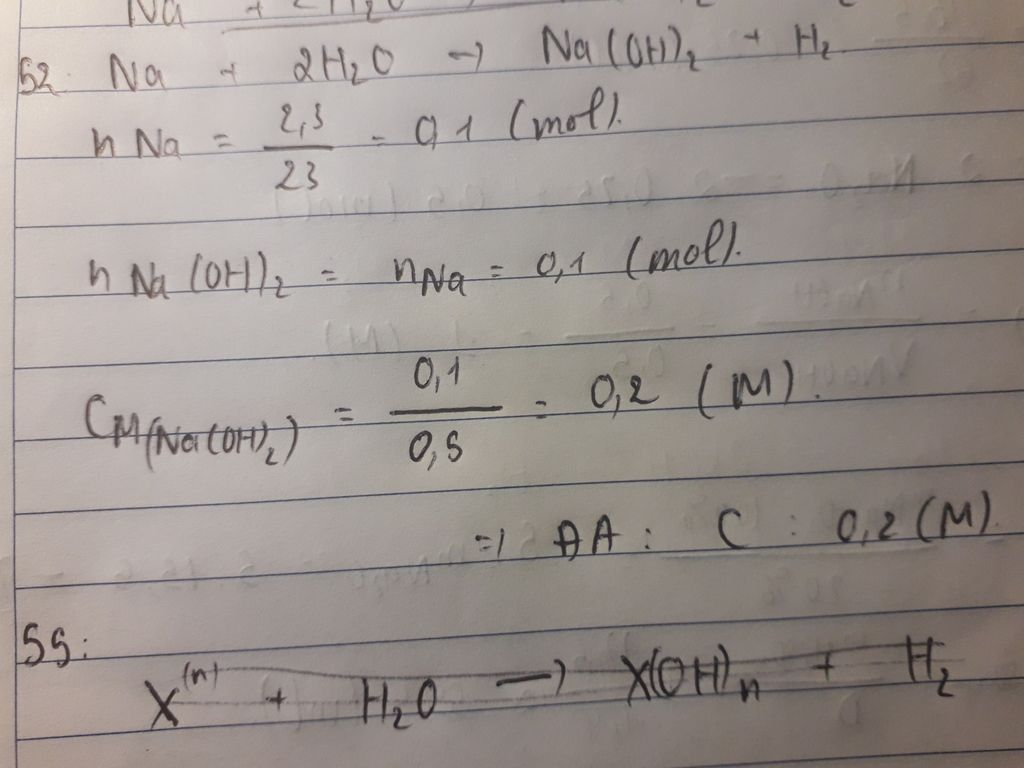 Na + 2H₂O
52. Na + 2H₂O → Na(OH)₂ + H₂
nNa = 2,3 / 23 = 0,1 (mol).
nNa(OH)₂ = nNa = 0,1 (mol).
CM(Na(OH)₂) = 0,1 / 0,5 = 0,2 (M).
=) ĐA: C : 0,2 (M)
55:
X⁽ⁿ⁾ + H₂O → X(OH)n + H₂